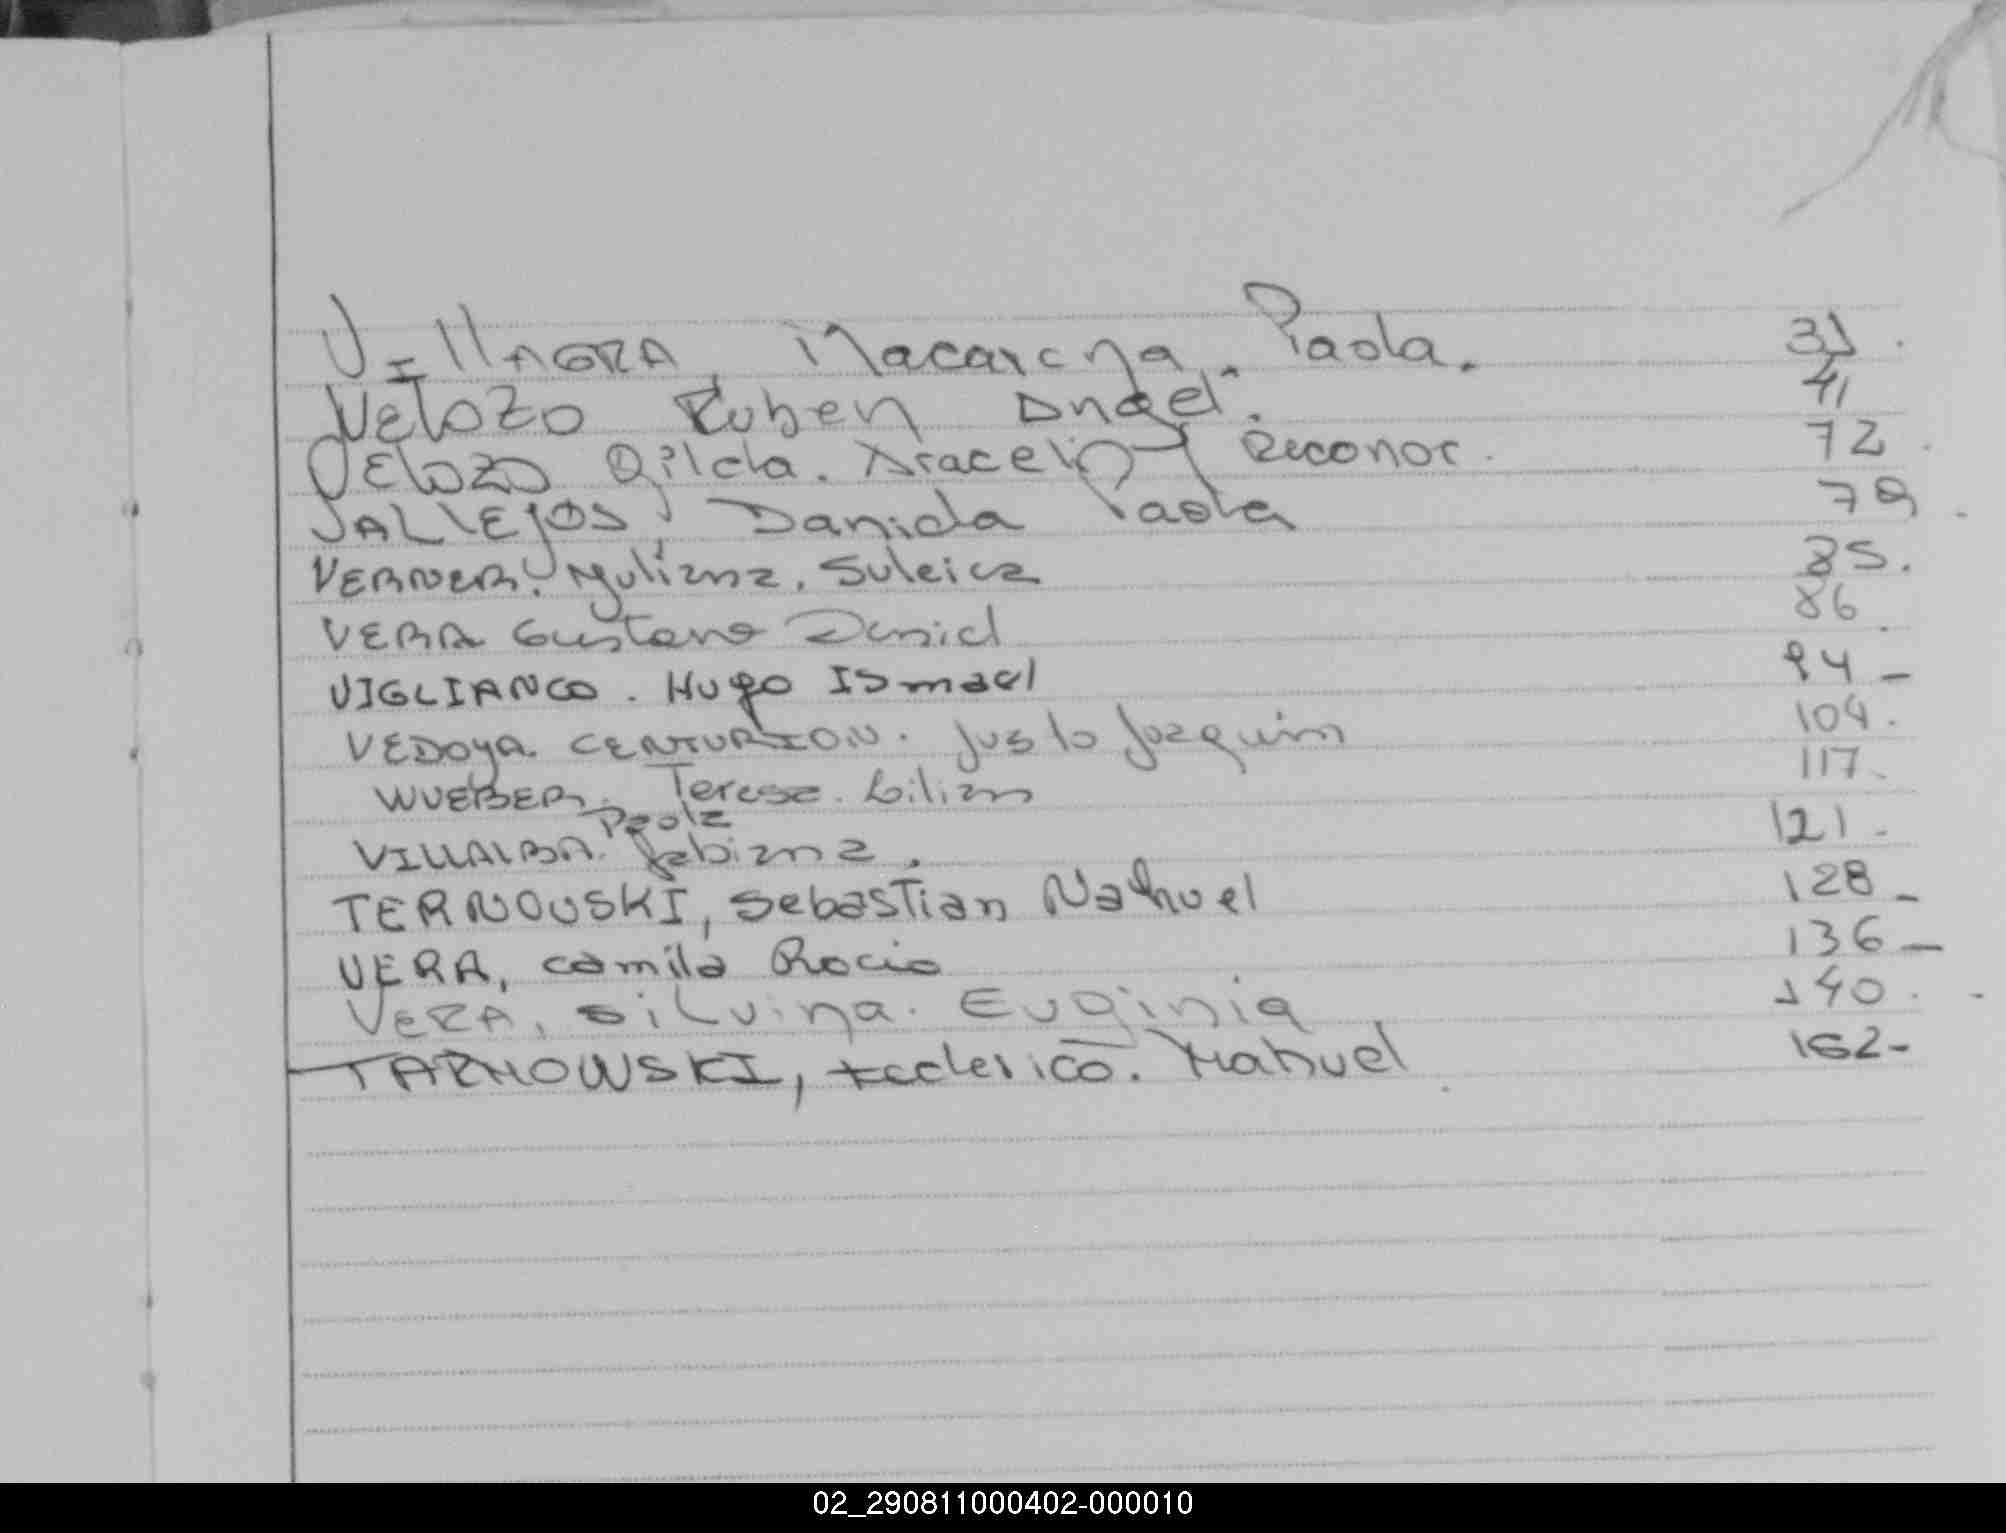 VillAGRA, Macarena. Paola. 31.
VELOZO Ruben Angel. 41
VELOZO Gilda. Araceli Reconoc. 72.
VALLEJOS, Daniela Paola 79.
VERNER. Yuliana. Suleica 85.
VERA Gustavo Daniel 86.
VIGLIANCO. Hugo ISmael 94-
VEDOYA. CENTURION. Justo Joaquin 104.
WUEBER. Teresa. Lilian 117.
VILLALBA. Paola Fabiana. 121.
TERNOUSKI, Sebastian Nahuel 128-
VERA, camila Rocio 136-
VERA, Silvina. Euginia 140.
TARNOWSKI, Federico. Nahuel 162-
02_290811000402-000010